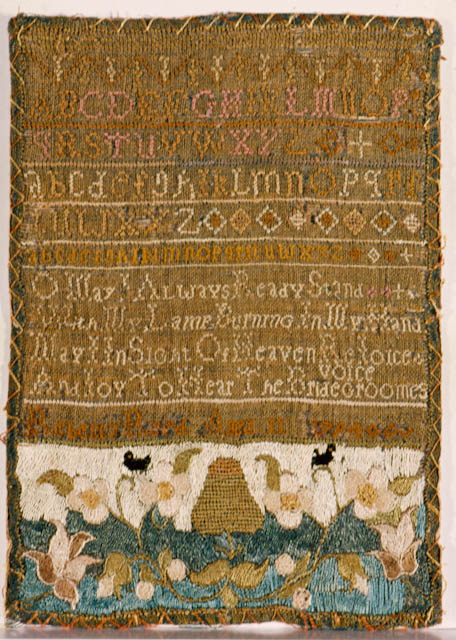 ABCDEFGHIKLMNOP
QRSTUVWXY
abcdefghiklmnopqrs
Z
abcdefghiklmnopqrstuwx
O May I Always Ready Stand
With My Lamp Burning In My Hand
May I In Sight Of Heaven Rejoice
And Joy To Hear The Bridegroomes Voice